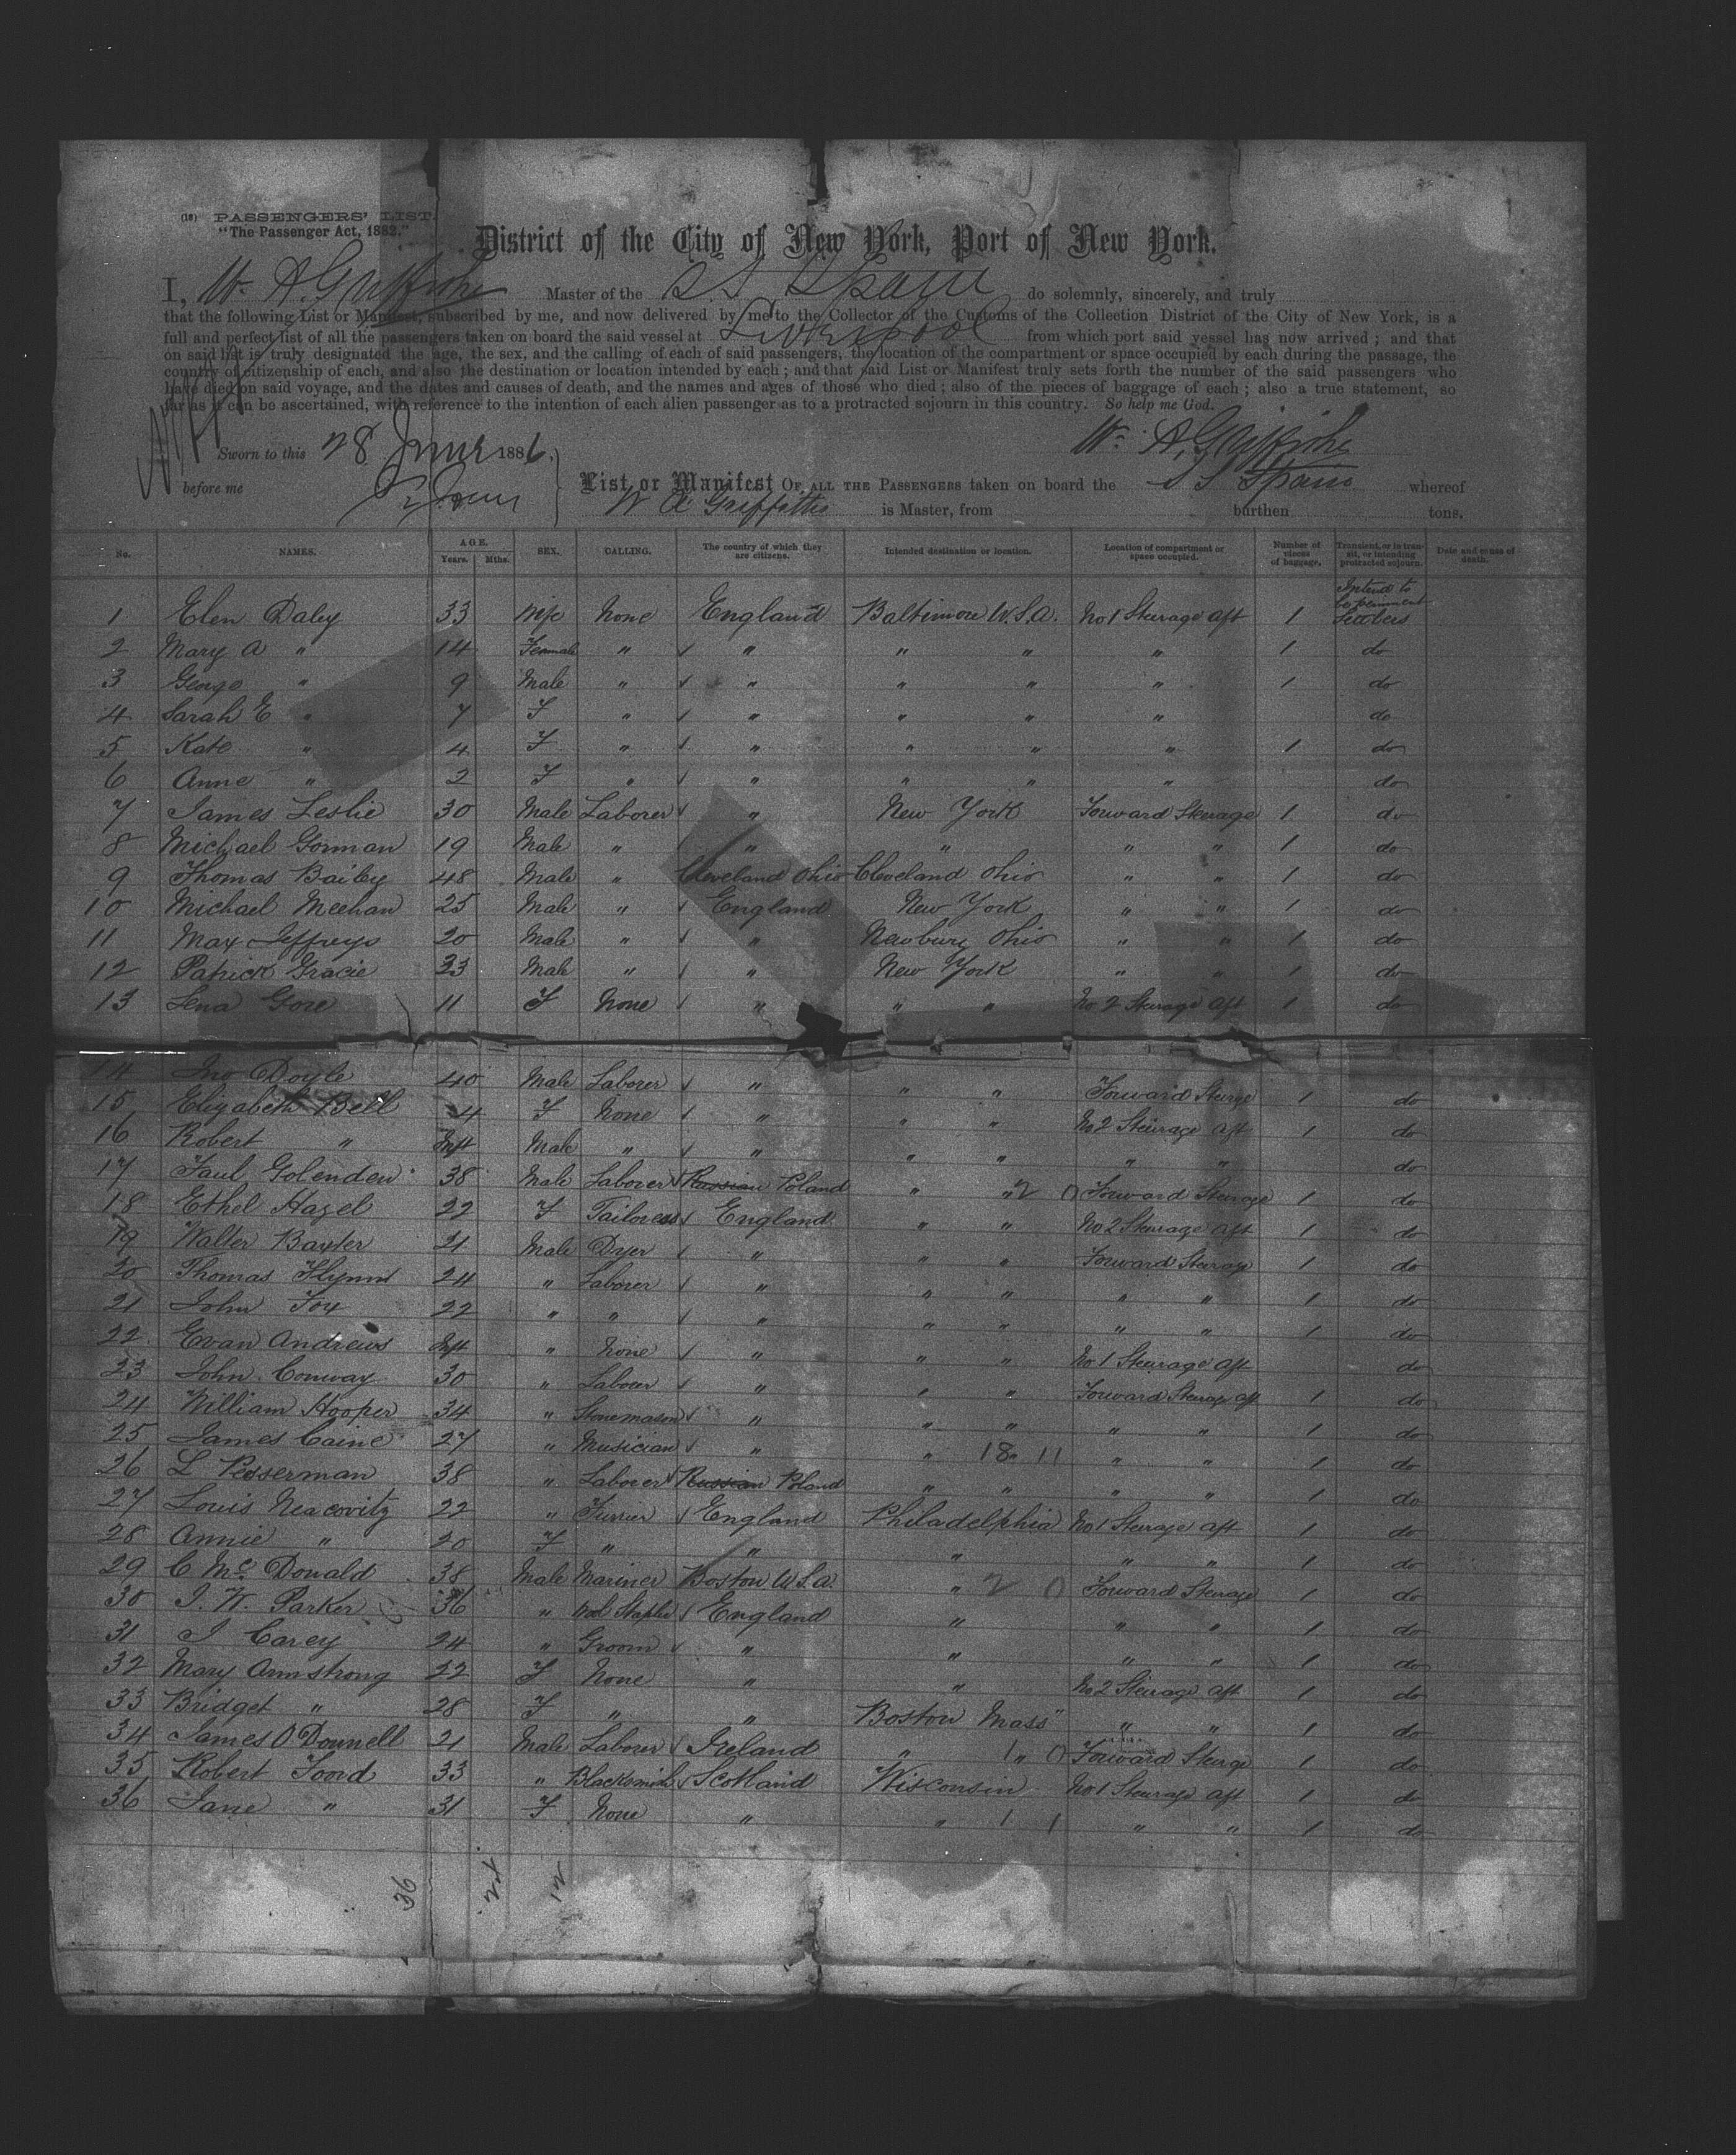 (18) PASSENGERS' LIST.
"The Passenger Act, 1882."
District of the City of New York, Port of New York.
I, W. A. Griffiths Master of the S.S. Spain do solemnly, sincerely, and truly
that the following List or Manifest, subscribed by me, and now delivered by me to the Collector of the Customs of the Collection District of the City of New York, is a
full and perfect list of all the passengers taken on board the said vessel at Liverpool from which port said vessel has now arrived; and that
on said list is truly designated the age, the sex, and the calling of each of said passengers, the location of the compartment or space occupied by each during the passage, the
country of citizenship of each, and also the destination or location intended by each; and that said List or Manifest truly sets forth the number of the said passengers who
have died on said voyage, and the dates and causes of death, and the names and ages of those who died; also of the pieces of baggage of each; also a true statement, so
far as it can be ascertained, with reference to the intention of each alien passenger as to a protracted sojourn in this country. So help me God.
W. A. Griffiths
Sworn to this 28 June 1886,
before me
List or Manifest OF ALL THE PASSENGERS taken on board the S S Spain whereof
W A Griffiths is Master, from burthen tons.
No. NAMES. AGE. Years. Mths. SEX. CALLING. The country of which they are citizens. Intended destination or location. Location of compartment or space occupied. Number of pieces of baggage. Transient, or in transit, or intending protracted sojourn. Date and cause of death.
1 Elen Daley 33 None England Baltimore U.S.A. No 1 Steerage aft 1 Intend to be permanent Settlers
2 Mary A " 14 Female " " " " " 1 do
3 George " 9 Male " " " " " 1 do
4 Sarah E " 7 F " " " " " do
5 Kate " 4 F " " " " " 1 do
6 Anne " 2 F " " " " " do
7 James Leslie 30 Male Laborer " New York Forward Steerage 1 do
8 Michael Gorman 19 Male " " " " " 1 do
9 Thomas Bailey 48 Male " Cleveland Ohio Cleveland Ohio " " 1 do
10 Michael Meehan 25 Male " England New York " " 1 do
11 Max Jeffreys 20 Male " " Newbury Ohio " " 1 do
12 Patrick Gracie 33 Male " " New York " " 1 do
13 Lena Gore 11 F None " " " No 2 Steerage aft 1 do
14 Jno Doyle 40 Male Laborer " " " Forward Steerge 1 do
15 Elizabeth Bell 24 F None " " " No 2 Steerage aft 1 do
16 Robert " Inft Male " " " " " " do
17 Paul Golenden 38 Male Laborer Russian Poland " " 2 0 Forward Steerage 1 do
18 Ethel Hazel 22 F Tailoress England " " No 2 Steerage aft 1 do
19 Walter Baxter 21 Male Dyer " " " Forward Steerage 1 do
20 Thomas Flynn 24 " Laborer " " " " " 1 do
21 John Fox 22 " " " " " " " 1 do
22 Evan Andrews Inft " None " " " No 1 Steerage aft do
23 John Conway 30 " Laborer " " " Forward Steerage aft 1 do
24 William Hooper 34 " Stonemason " " " " " 1 do
25 James Caine 27 " Musician " " 18 11 " " 1 do
26 L Pesserman 38 " Laborer Russian Poland " " " " 1 do
27 Louis Neacovitz 22 " Furrier England Philadelphia No 1 Steerage aft 1 do
28 Annie " 20 F " " " " " 1 do
29 C McDonald 38 Male Mariner Boston U.S.A. " 2 0 Forward Steerage 1 do
30 J. W. Parker 36 " Wool Stapler England " " " 1 do
31 J Carey 24 " Groom " " " " 1 do
32 Mary Armstrong 22 F None " " No 2 Steerage aft 1 do
33 Bridget " 28 F " " Boston Mass " " 1 do
34 James O'Donnell 21 Male Laborer Ireland " 1 " 0 Forward Steerge 1 do
35 Robert Foord 33 " Blacksmith Scotland Wisconsin No 1 Steerage aft 1 do
36 Jane " 31 F None " " 1 1 " " 1 do
36 24 12